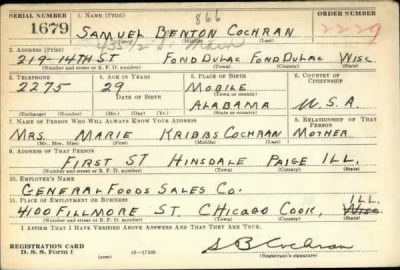 SERIAL NUMBER 1. NAME (Print) 866 ORDER NUMBER
1679 SAMUEL BENTON COCHRAN 2229
2. ADDRESS (Print)
219-14TH ST FOND DU LAC FOND DU LAC WISC
(Number and street or R. F. D. number) (Town) (County) (State)
3. TELEPHONE 4. AGE IN YEARS 5. PLACE OF BIRTH 6. COUNTRY OF CITIZENSHIP
2275 29 MOBILE
DATE OF BIRTH (Town or county)
ALABAMA U.S.A.
(Exchange) (Number) (Mo.) (Day) (Yr.) (State or country)
7. NAME OF PERSON WHO WILL ALWAYS KNOW YOUR ADDRESS 8. RELATIONSHIP OF THAT PERSON
MRS. MARIE KRIBBS COCHRAN MOTHER
(Mr., Mrs., Miss) (First) (Middle) (Last)
9. ADDRESS OF THAT PERSON
FIRST ST HINSDALE PAIGE ILL.
(Number and street or R. F. D. number) (Town) (County) (State)
10. EMPLOYER'S NAME
GENERAL FOODS SALES CO.
11. PLACE OF EMPLOYMENT OR BUSINESS ILL.
4100 FILLMORE ST. CHICAGO COOK, WISC
(Number and street or R. F. D. number) (Town) (County) (State)
I AFFIRM THAT I HAVE VERIFIED ABOVE ANSWERS AND THAT THEY ARE TRUE.
REGISTRATION CARD S B Cochran
D. S. S. Form 1 16-17105 (Registrant's signature)